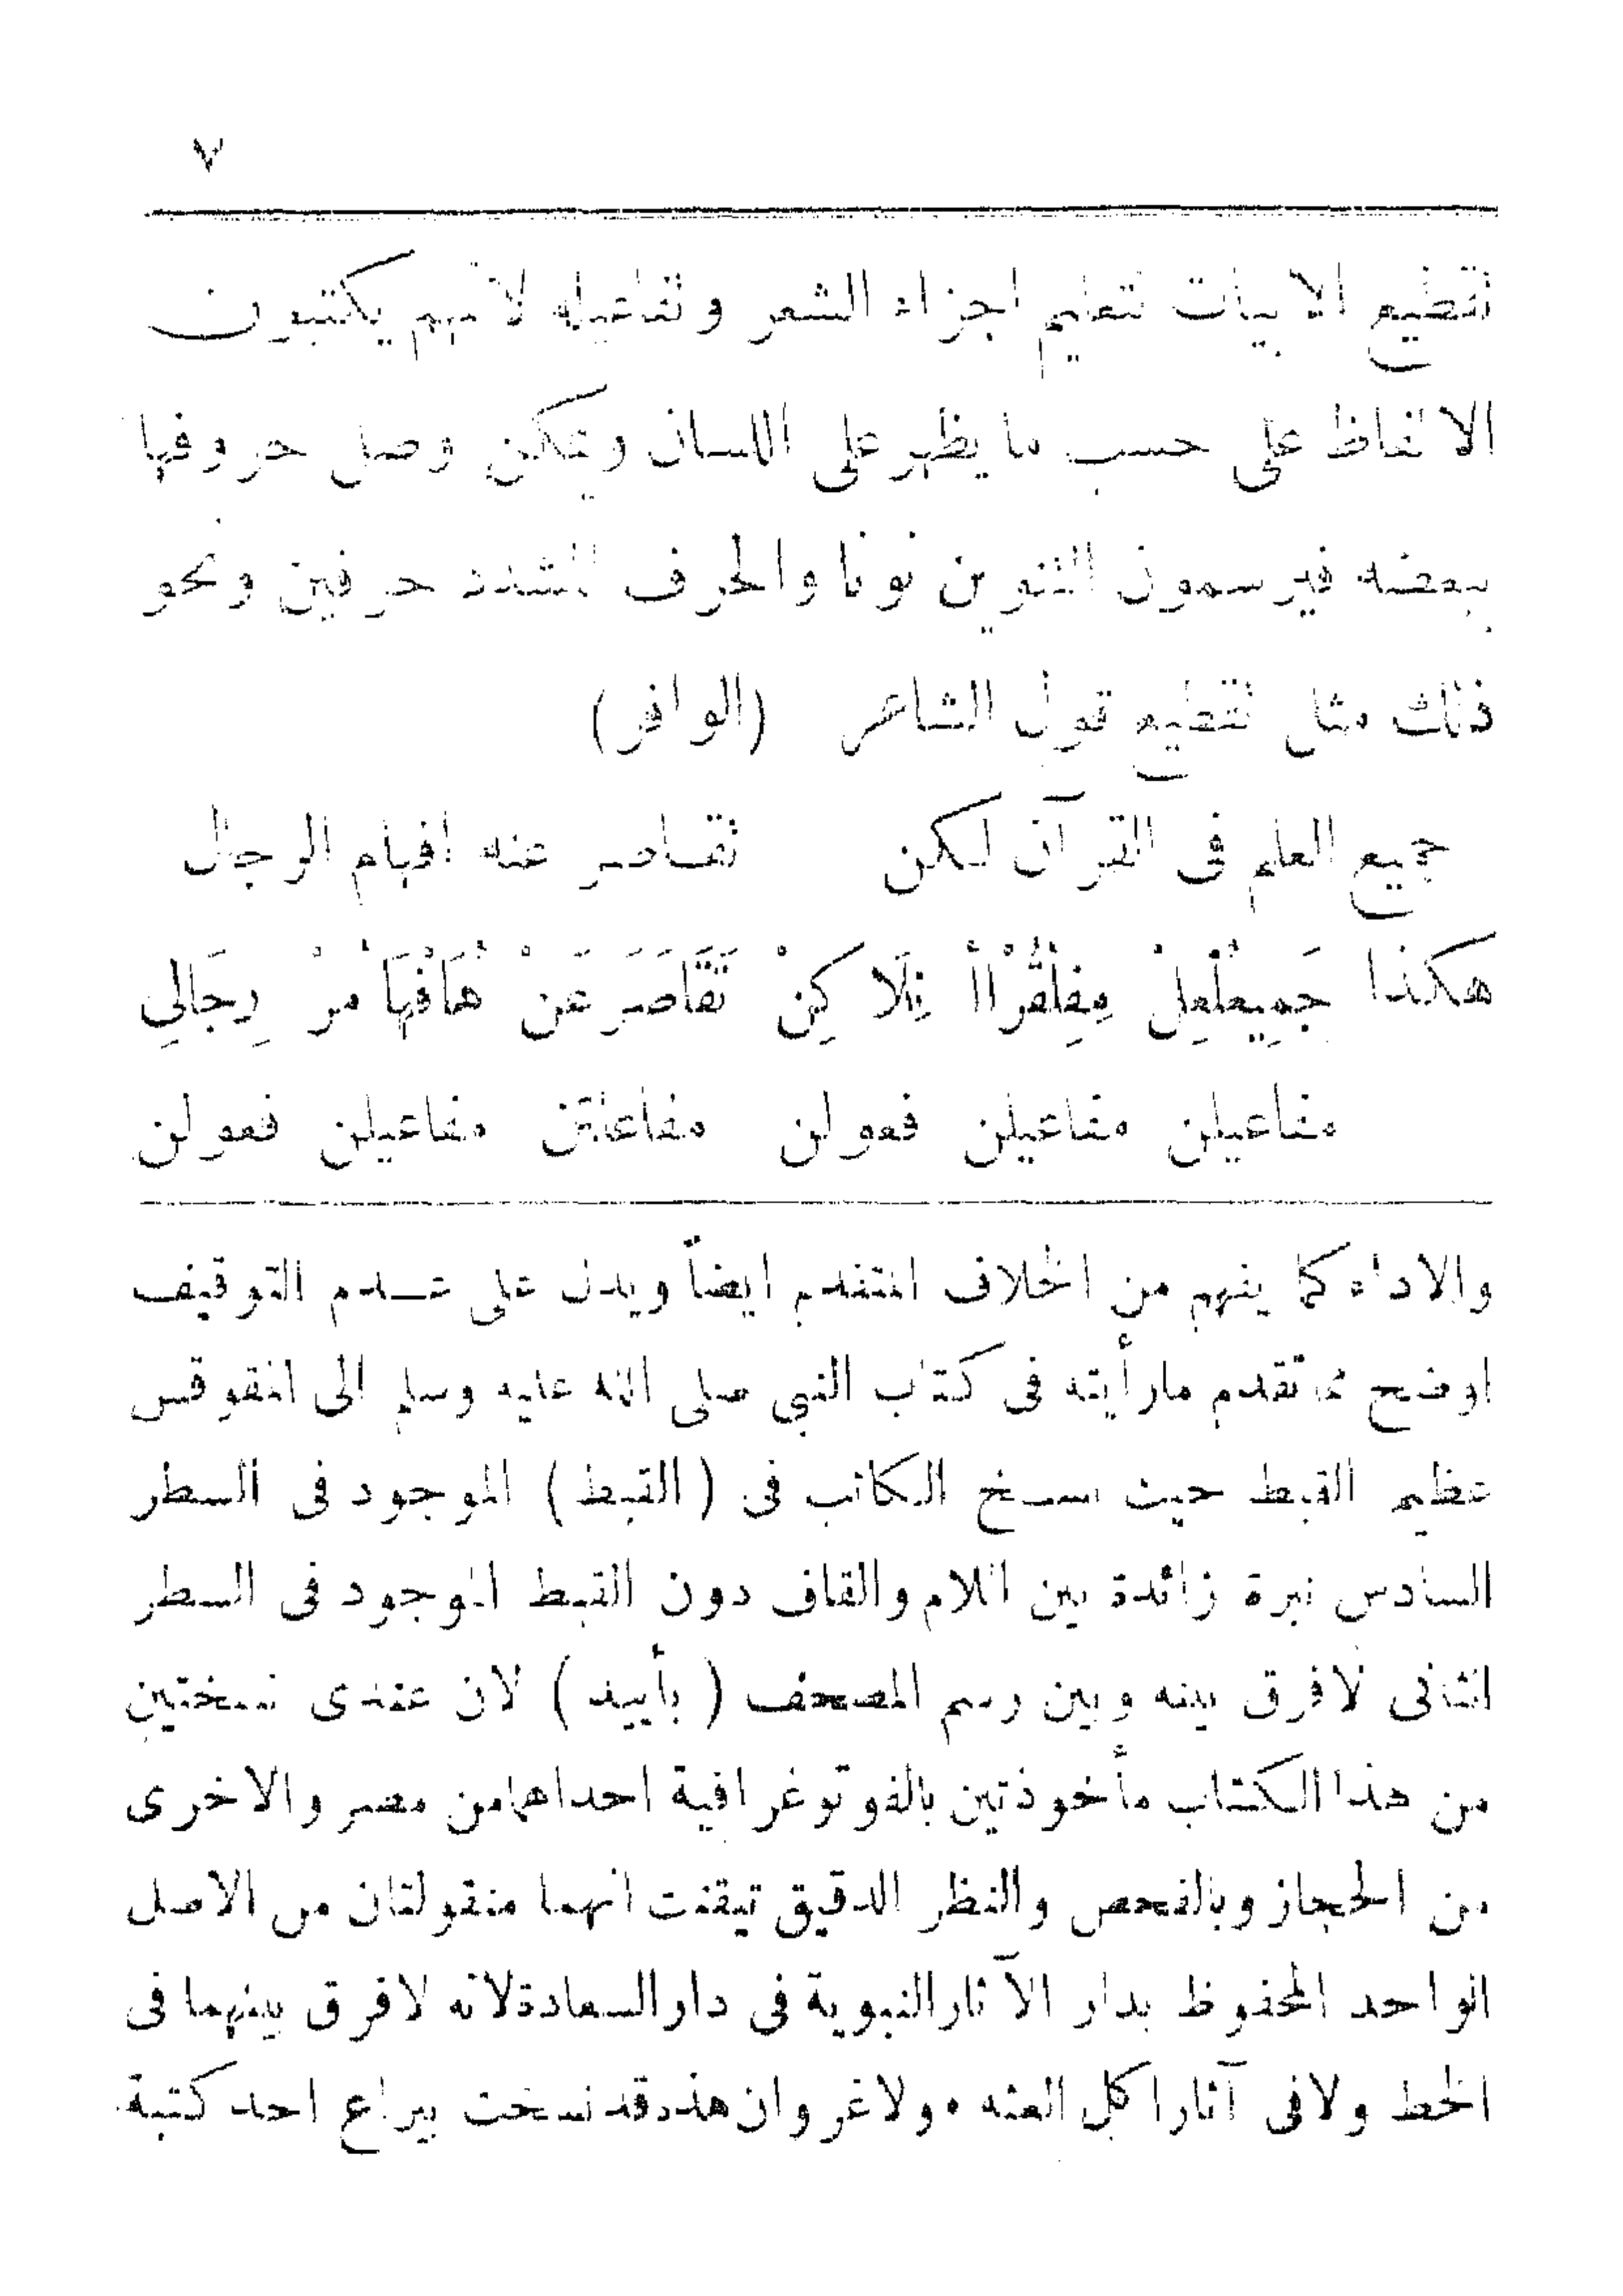 ٧
تقطيع الابيات تعليم اجزاء الشعر وتفاعيله لانهم يكتبون
الالفاظ على حسب ما يظهر على اللسان ويمكن وصل حروفها
ببعضه فيرسمون التنوين نونا والحرف المشدد حرفين ونحو
ذلك مثل تقطيع قول الشاعر (الوافر)
جميع العلم فى القرآن لكن تقاصر عنه افهام الرجال
هكذا جَمِيعُلْعِلْ مِفِلْقُرْأا نِلَا كِنْ تَقَاصَرَ عَنْ هُأَفْهَا مُرْ رِجَالِي
مفاعيلن مفاعيلن فعولن مفاعلتن مفاعيلن فعولن
والاداء كما يفهم من الخلاف المتقدم ايضاً ويدل على عدم التوقيف
اوضح مما تقدم مارأيته فى كتاب النبي صلى الله عليه وسلم الى المقوقس
عظيم القبط حيث نسخ الكاتب فى ( القبط ) الموجود فى السطر
السادس نبرة زائدة بين اللام والقاف دون القبط الموجود فى السطر
الثانى لافرق بينه وبين رسم المصحف ( بأييد ) لان عندى نسختين
من هذا الكتاب مأخوذتين بالفوتوغرافية احداهما من مصر والاخرى
من الحجاز وبالفحص والنظر الدقيق تيقنت انهما منقولتان من الاصل
الواحد المحفوظ بدار الآثار النبوية فى دار السعادة لانه لا فرق بينهما فى
الخط ولا فى آثار اكل العثه ٠ ولاغرو ان هذه قد نسخت بيراع احد كتبة